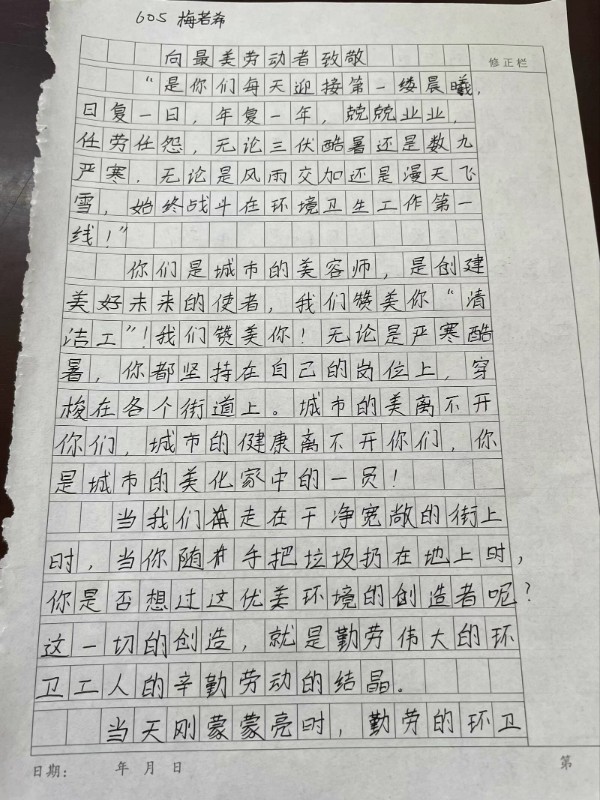 605 梅若希
向最美劳动者致敬
修正栏
“是你们每天迎接第一缕晨曦,
日复一日，年复一年，兢兢业业,
任劳任怨，无论三伏酷暑还是数九
严寒，无论是风雨交加还是漫天飞
雪，始终战斗在环境卫生工作第一
线！”
你们是城市的美容师，是创建
美好未来的使者，我们赞美你“清
洁工”！我们赞美你！无论是严寒酷
暑，你都坚持在自己的岗位上，穿
梭在各个街道上。城市的美离不开
你们，城市的健康离不开你们，你
是城市的美化家中的一员！
当我们走在干净宽敞的街上
时，当你随手把垃圾扔在地上时，
你是否想过这优美环境的创造者呢？
这一切的创造，就是勤劳伟大的环
卫工人的辛勤劳动的结晶。
当天刚蒙蒙亮时，勤劳的环卫
日期： 年 月 日
第